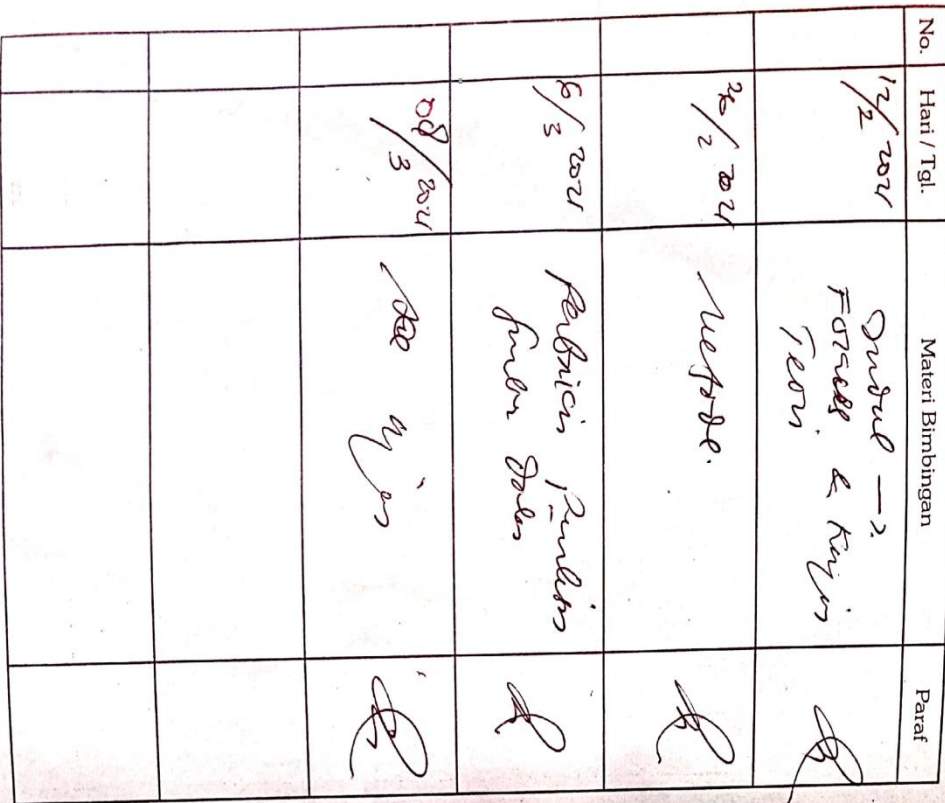 No. Hari / Tgl. Materi Bimbingan Paraf
12/2 2021 Judul →
Formass & Kajian
Teori
26/2 2021 Metode.
6/3 2021 Perbaiki Penulisan
Sumber
08/3 2021 Acc Ujian